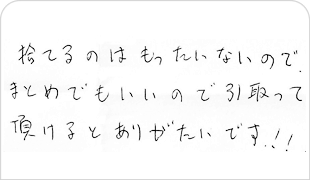 捨てるのはもったいないので、
まとめでもいいので引取って
頂けるとありがたいです!!